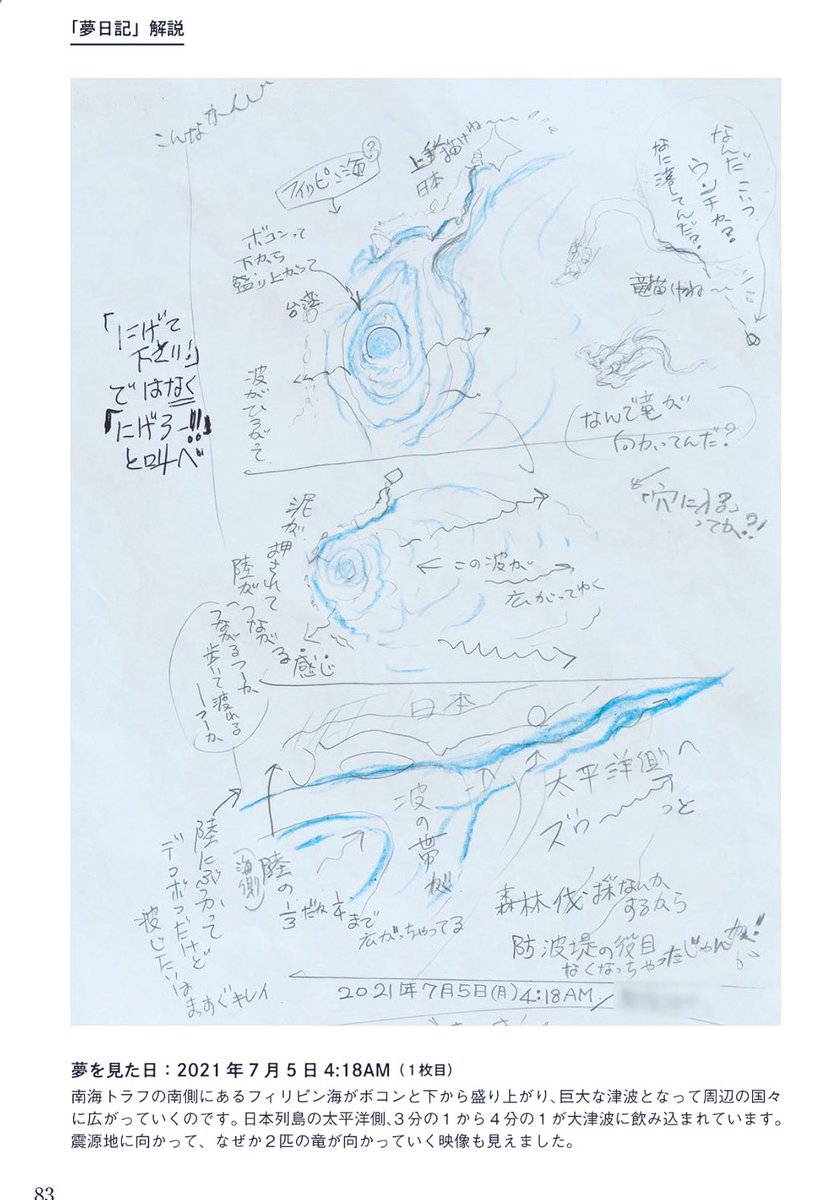 「夢日記」解説
こんなかんじ
上手く描けね〜〜
日本
フィリピン海?
ボコンって
下から
盛り上がって
台湾
波がひろがって
なんだこいつ
ウンチか?
なに落してんだ?
竜描けね〜
なんで竜が
向かってんだ?
「穴に入る」
ってか?!
「にげて
下さい!」
ではなく
「にげろー!!」
と叫べ
泥が押されて
陸がつながる
感じ
この波が
広がってゆく
つながるつーか
歩いて渡れる
ーつーか
日本
太平洋側へ
ズゥ〜〜っと
波の帯が
陸にぶつかって
デコボコだけど
波じたいは
まっすぐキレイ
(海側)
陸の1/3だね1/4まで
広がっちゃってる
森林伐採なんか
するから
防波堤の役目
なくなっちゃったじゃんか!!
2021年7月5日(月)4:18AM
夢を見た日:2021年7月5日4:18AM(1枚目)
南海トラフの南側にあるフィリピン海がボコンと下から盛り上がり、巨大な津波となって周辺の国々
に広がっていくのです。日本列島の太平洋側、3分の1から4分の1が大津波に飲み込まれています。
震源地に向かって、なぜか2匹の竜が向かっていく映像も見えました。
83